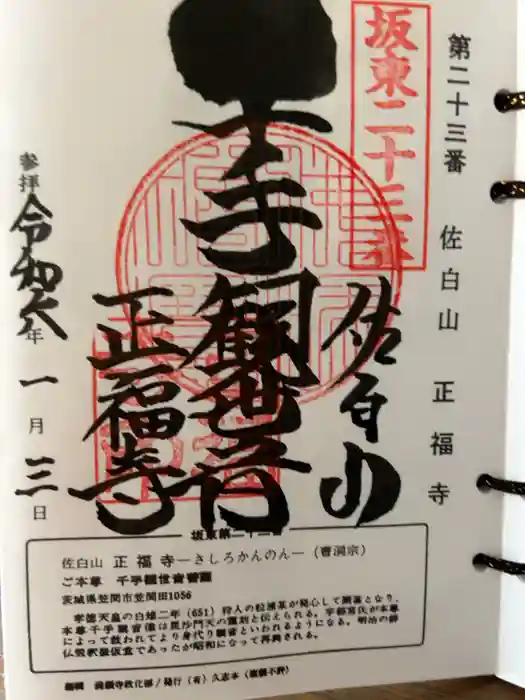 第二十三番 佐白山 正福寺
坂東二十三番
佐白山
千手観世音
正福寺
参拝 令和六年一月三日
坂東第二十三番
佐白山 正福寺―さしろかんのん―(曹洞宗)
ご本尊 千手観世音菩薩
茨城県笠間市笠間1056
孝徳天皇の白雉二年(651)狩人の粒浦某が発心して開基となり、
本尊千手観音像は毘沙門天の彫刻と伝えられる。宇都宮氏が本尊
によって救われてより身代り観音といわれるようになる。明治の排
仏毀釈後仮堂であったが昭和になって再興される。
編纂 満願寺教化部/発行(有)久志本(複製不許)